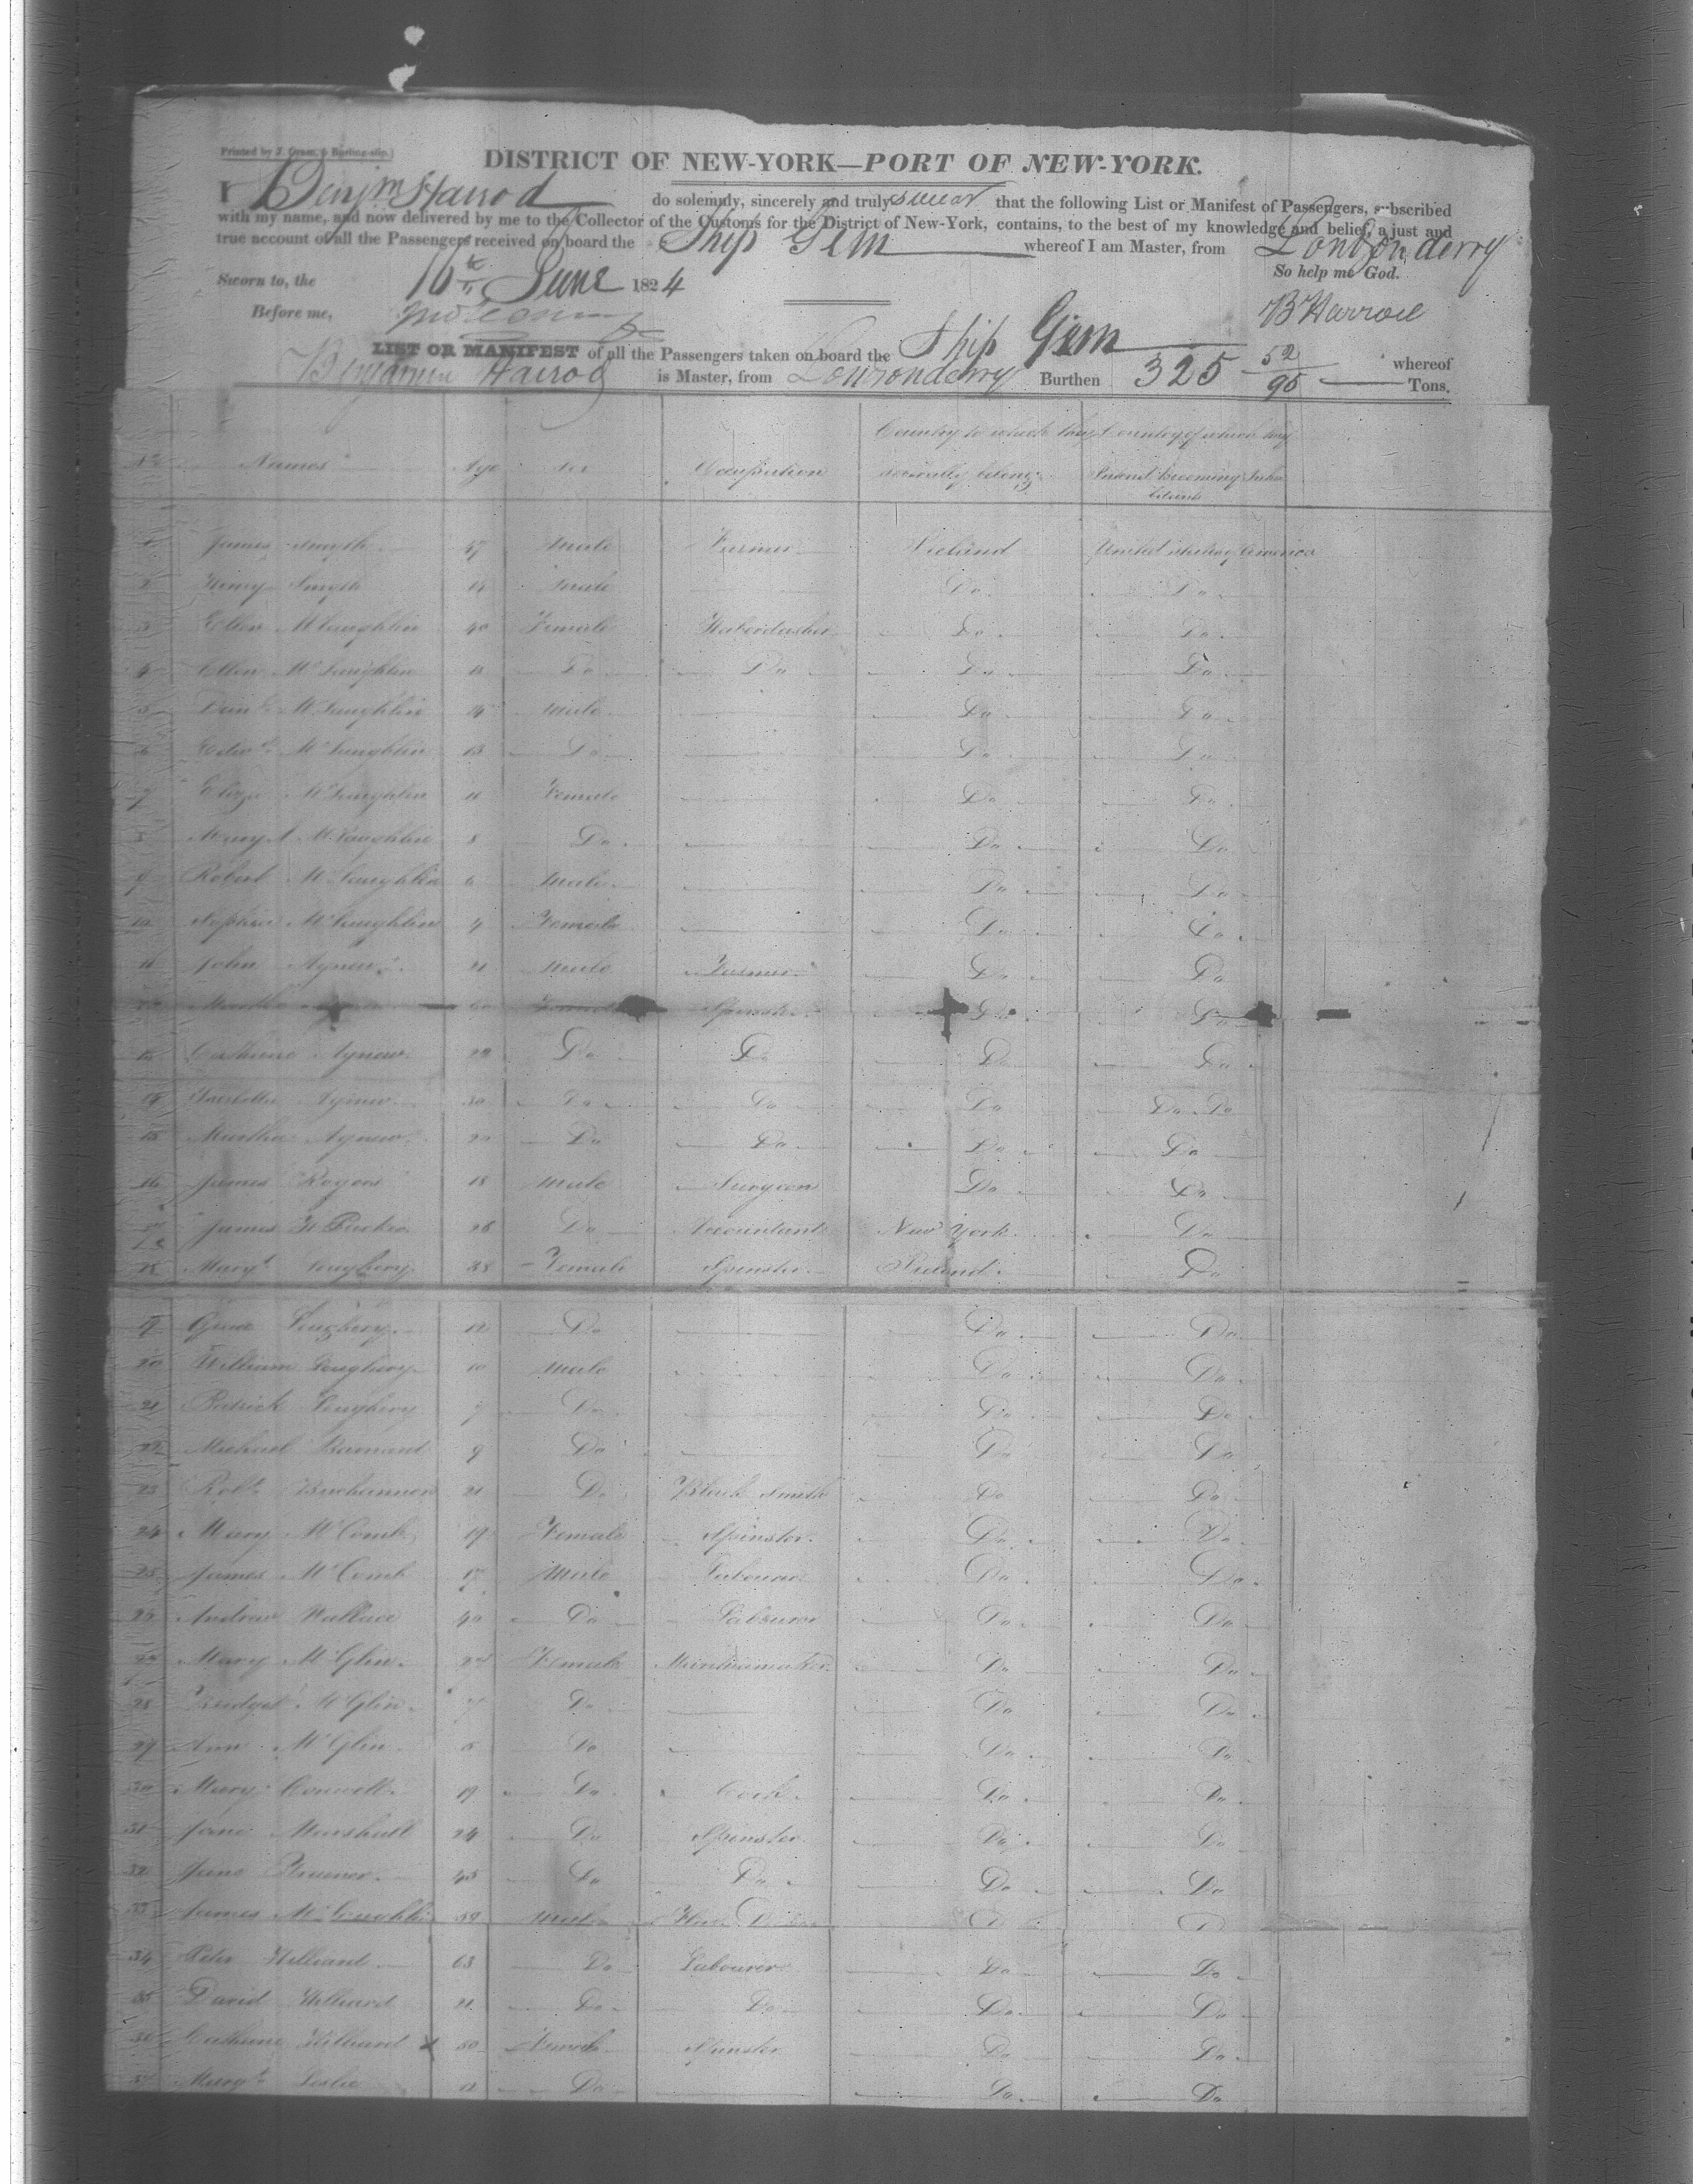 Printed by J. Gram, 6 Burling-slip.)
DISTRICT OF NEW-YORK—PORT OF NEW-YORK.
I Benjm Harrod do solemnly, sincerely and truly swear that the following List or Manifest of Passengers, subscribed
with my name, and now delivered by me to the Collector of the Customs for the District of New-York, contains, to the best of my knowledge and belief, a just and
true account of all the Passengers received on board the Ship Gem whereof I am Master, from Londonderry
So help me God.
Sworn to, the 16th June 1824
Before me,
B Harrod
LIST OR MANIFEST of all the Passengers taken on board the Ship Gem whereof
Benjamin Harrod is Master, from Londonderry Burthen 325 52/95 Tons.
No Names Age Sex Occupation Country to which they severally belong Country of which they Intend becoming Inhabitants
1 James Smyth 47 Male Farmer Ireland United States of America
2 Henry Smyth 14 Male Do Do
3 Ellen McLaughlin 40 Female Haberdasher Do Do
4 Ellen McLaughlin Do Do Do Do
5 Danl McLaughlin 14 Male Do Do
6 Edwd McLaughlin 13 Do Do Do
7 Eliza McLaughlin 11 Female Do Do
8 Mary A McLaughlin 8 Do Do Do
9 Robert McLaughlin 6 Male Do Do
10 Sophia McLaughlin 4 Female Do Do
11 John Agnew 21 Male Farmer Do Do
12 Martha 60 Female Spinster Do Do
13 Catherine Agnew 22 Do Do Do Do
14 Agnew 30 Do Do Do Do Do
15 Martha Agnew 20 Do Do Do Do
16 James Rogers 18 Male Surgeon Do Do
17 James H 26 Do Accountant New York Do
18 Margt Loughery 38 Female Spinster Ireland Do
19 Grace Loughery 12 Do Do Do
20 William Loughery 10 Male Do Do
21 Patrick Loughery 7 Do Do Do
22 Michael 9 Do Do Do
23 Robt Buchannon 21 Do Black Smith Do Do
24 Mary McComb 19 Female Spinster Do Do
25 James McComb 17 Male Labourer Do Do
26 Andrew Wallace 40 Do Labourer Do Do
27 Mary McGlin Female Do Do
28 Bridget McGlin 7 Do Do Do
29 Ann McGlin 5 Do Do Do
30 Mary Conwell 19 Do Cook Do Do
31 Jane Marshall 24 Do Spinster Do Do
32 Jane 45 Do Do Do Do
33 James McLaughlin 39 Male Do Do
34 Peter Hilliard 63 Do Labourer Do Do
35 David Hilliard 21 Do Do Do Do
36 Catherine Hilliard x 50 Female Spinster Do Do
37 Margt Leslie 12 Do Do Do